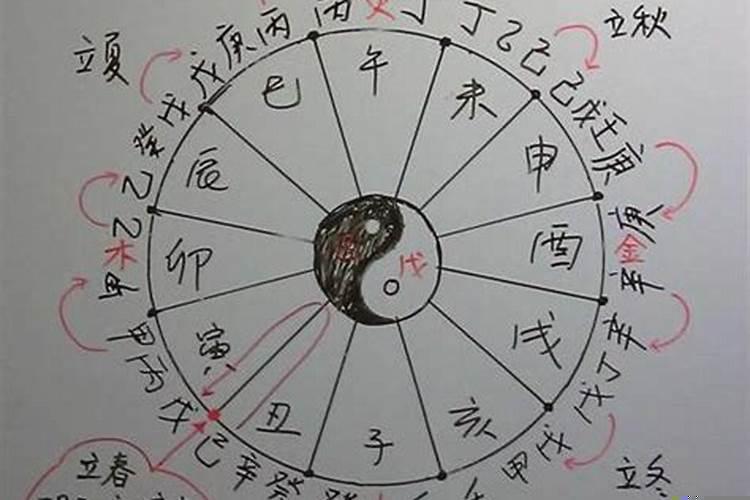 立夏
立秋
丙 火 丁
戊 戊 庚 丙
丁 乙 己
己 戊 壬 庚
癸
乙
乙
木
甲
甲 丙 戊
己 辛 癸
庚
金
辛
辛
丁
戊
戊
甲
巳 午 未 申 酉 戌 亥 子 丑 寅 卯 辰
戊
立春
立冬